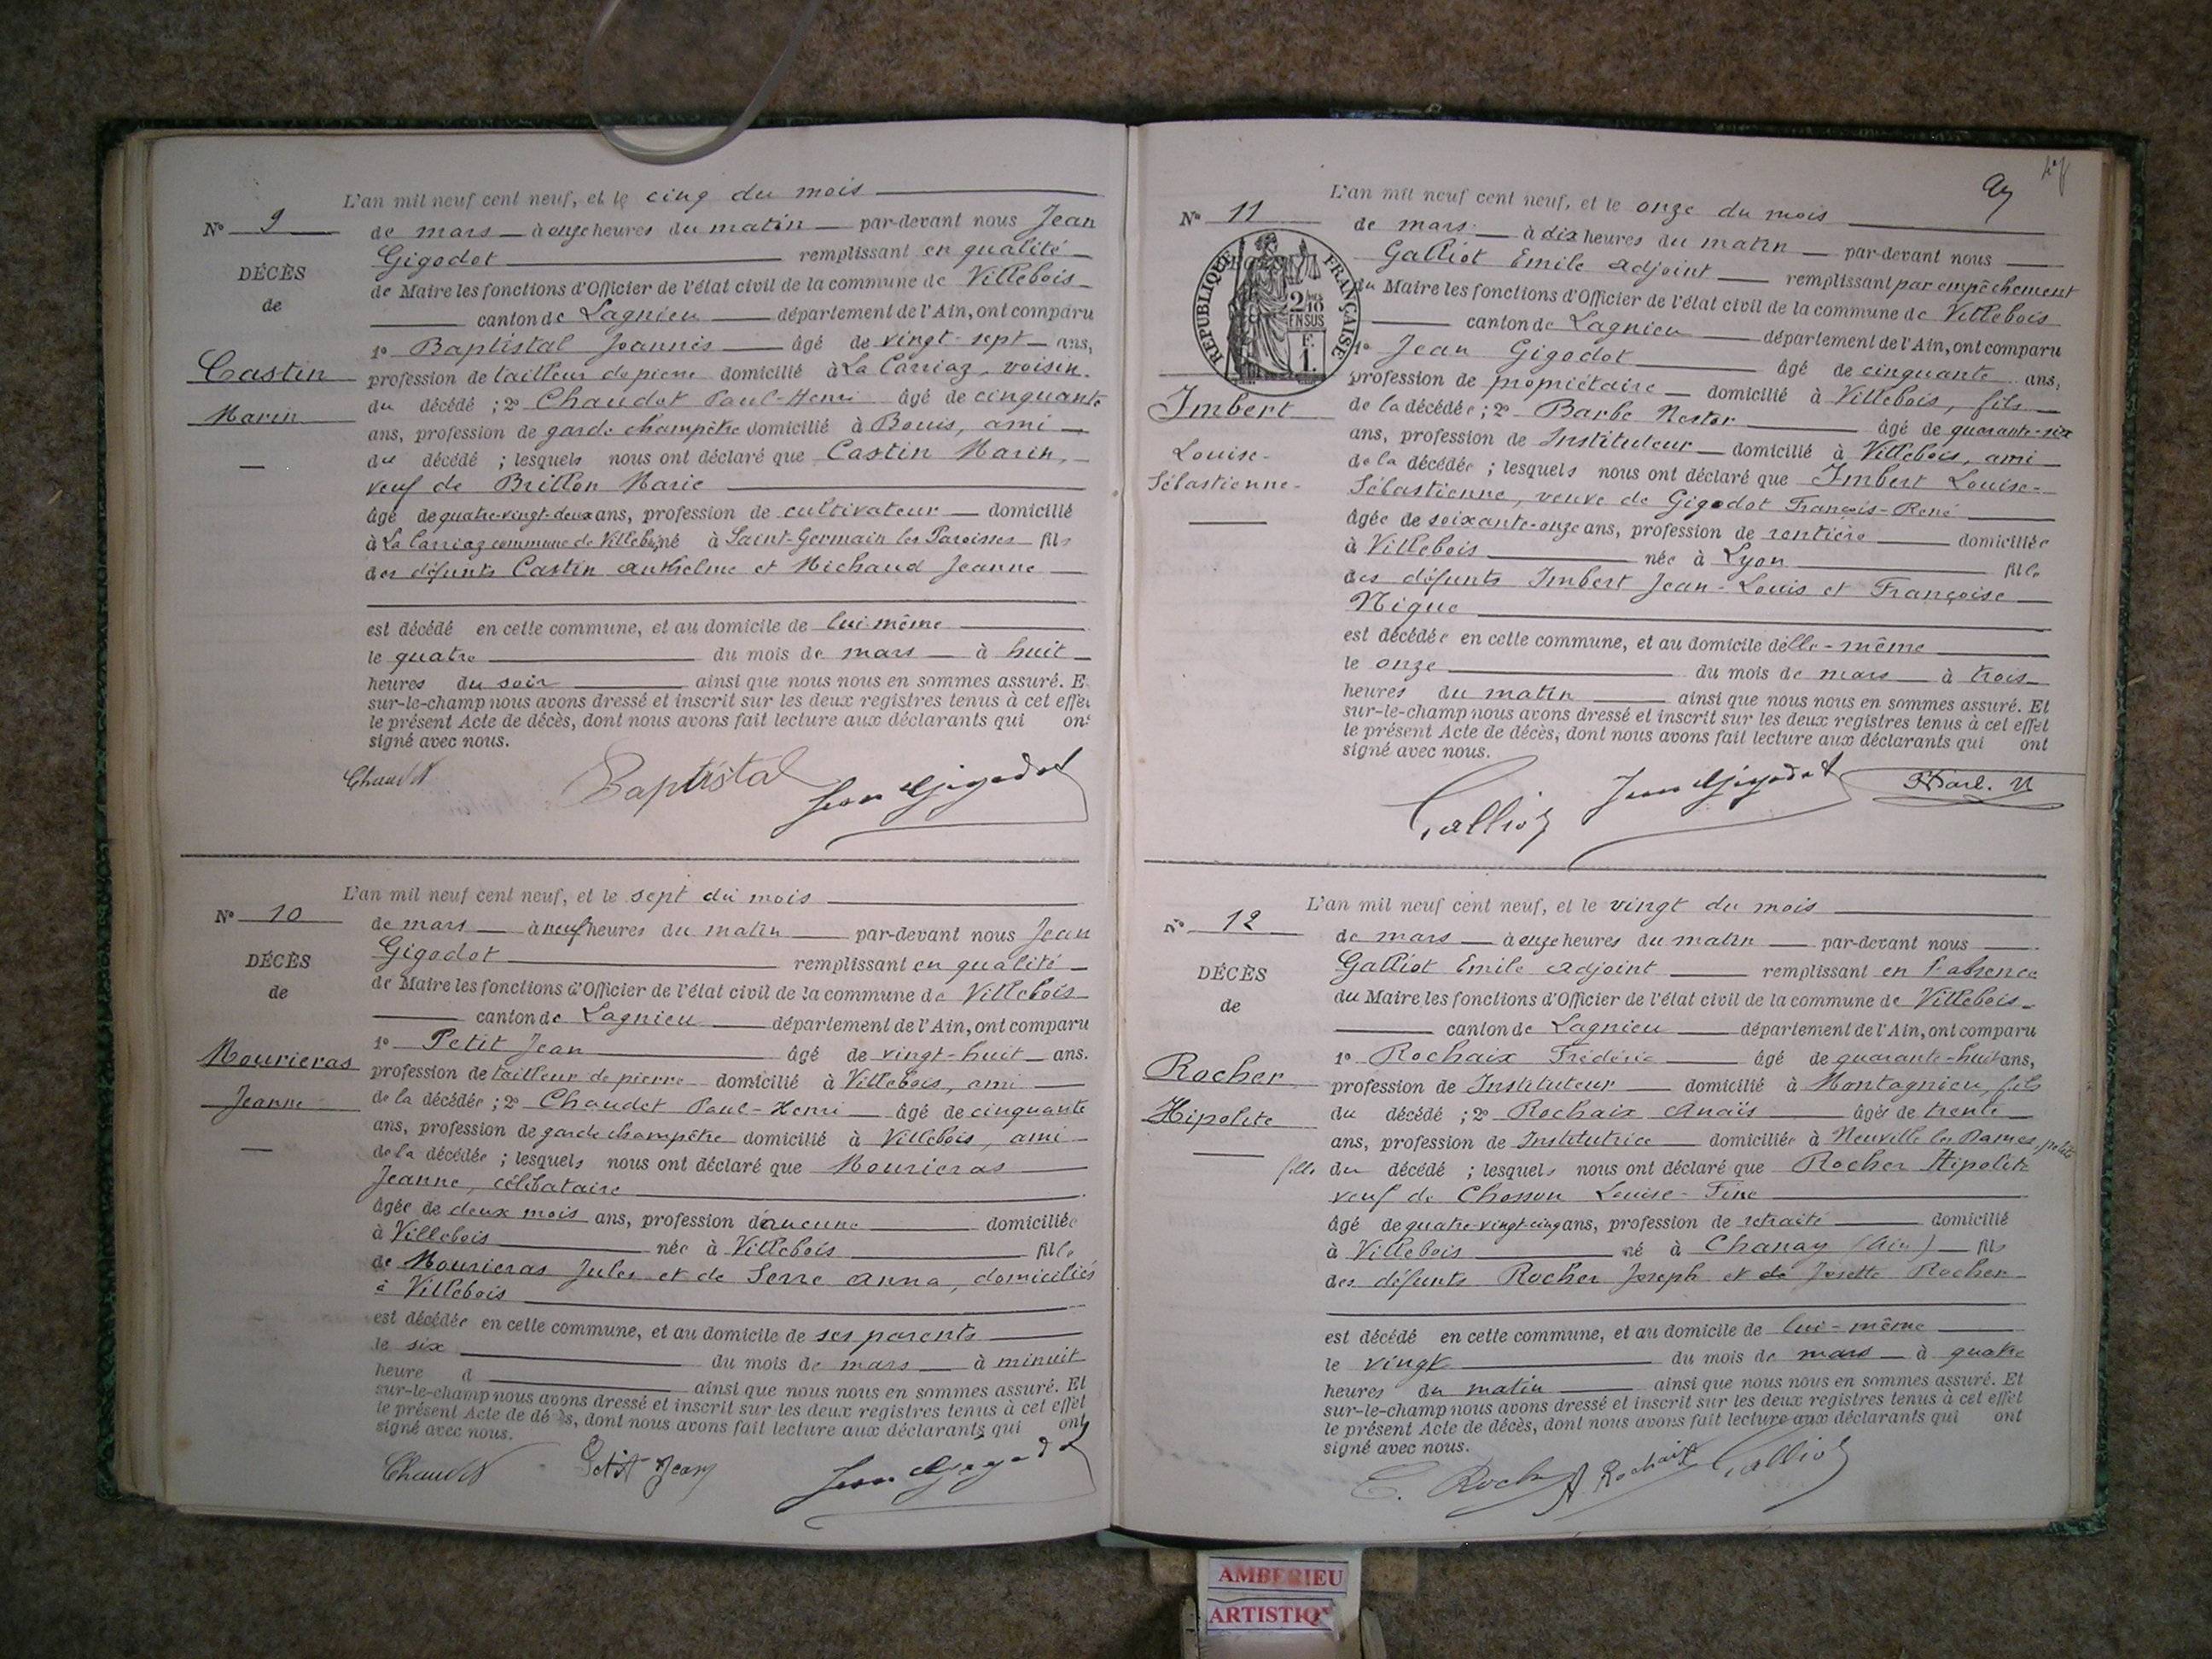 L'an mil neuf cent neuf, et le cinq du mois
N° 9
de mars à onze heures du matin par-devant nous Jean
Gigodot remplissant en qualité
DÉCÈS
de Maire les fonctions d'Officier de l'état civil de la commune de Villebois
de
canton de Lagnieu département de l'Ain, ont comparu
1° Baptistal Joannès âgé de vingt-sept ans,
Castin
profession de tailleur de pierre domicilié à La Carriaz, voisin
Marin
du décédé ; 2° Chaudet Paul-Henri âgé de cinquante
ans, profession de garde champêtre domicilié à Bouis, ami
du décédé ; lesquels nous ont déclaré que Castin Marin,
veuf de Brillon Marie
âgé de quatre-vingt-deux ans, profession de cultivateur domicilié
à La Carriaz commune de Villebois né à Saint-Germain les Paroisses fils
des défunts Castin Anthelme et Michaud Jeanne
est décédé en cette commune, et au domicile de lui-même
le quatre du mois de mars à huit
heures du soir ainsi que nous nous en sommes assuré. E
sur-le-champ nous avons dressé et inscrit sur les deux registres tenus à cet effet
le présent Acte de décès, dont nous avons fait lecture aux déclarants qui ont
signé avec nous.
Chaudet Baptistal Jean Gigodot
L'an mil neuf cent neuf, et le sept du mois
N° 10
de mars à neuf heures du matin par-devant nous Jean
Gigodot remplissant en qualité
DÉCÈS
de Maire les fonctions d'Officier de l'état civil de la commune de Villebois
de
canton de Lagnieu département de l'Ain, ont comparu
1° Petit Jean âgé de vingt-huit ans.
Mourieras
profession de tailleur de pierre domicilié à Villebois, ami
Jeanne
de la décédée ; 2° Chaudet Paul-Henri âgé de cinquante
ans, profession de garde champêtre domicilié à Villebois, ami
de la décédée ; lesquels nous ont déclaré que Mourieras
Jeanne, célibataire
âgée de deux mois ans, profession d'aucune domiciliée
à Villebois née à Villebois fille
de Mourieras Jules et de Serre Anna, domiciliés
à Villebois
est décédée en cette commune, et au domicile de ses parents
le six du mois de mars à minuit
heure d ainsi que nous nous en sommes assuré. Et
sur-le-champ nous avons dressé et inscrit sur les deux registres tenus à cet effet
le présent Acte de décès, dont nous avons fait lecture aux déclarants qui ont
signé avec nous.
Chaudet Petit Jean Jean Gigodot
L'an mil neuf cent neuf, et le onze du mois
N° 11
de mars à dix heures du matin par-devant nous
Galliot Emile adjoint remplissant par empêchement
RÉPUBLIQUE FRANÇAISE
2/10 EN SUS
F. 1.
du Maire les fonctions d'Officier de l'état civil de la commune de Villebois
canton de Lagnieu département de l'Ain, ont comparu
1° Jean Gigodot âgé de cinquante ans,
profession de propriétaire domicilié à Villebois, fils
Imbert
de la décédée ; 2° Barbe Nestor âgé de quarante-six
ans, profession de Instituteur domicilié à Villebois, ami
Louise-
de la décédée ; lesquels nous ont déclaré que Imbert Louise-
Sébastienne-
Sébastienne, veuve de Gigodot François-René
âgée de soixante-onze ans, profession de rentière domiciliée
à Villebois née à Lyon fille
des défunts Imbert Jean-Louis et Françoise
Nique
est décédée en cette commune, et au domicile d'elle-même
le onze du mois de mars à trois
heures du matin ainsi que nous nous en sommes assuré. Et
sur-le-champ nous avons dressé et inscrit sur les deux registres tenus à cet effet
le présent Acte de décès, dont nous avons fait lecture aux déclarants qui ont
signé avec nous.
Galliot Jean Gigodot
L'an mil neuf cent neuf, et le vingt du mois
N° 12
de mars à onze heures du matin par-devant nous
Galliot Emile adjoint remplissant en l'absence
DÉCÈS
du Maire les fonctions d'Officier de l'état civil de la commune de Villebois
de
canton de Lagnieu département de l'Ain, ont comparu
1° Rochaix Frédéric âgé de quarante-huit ans,
Rocher
profession de Instituteur domicilié à Montagnieu, fils
Hipolite
du décédé ; 2° Rochaix Anaïs âgée de trente
ans, profession de Institutrice domiciliée à Neuville les Dames petite
fille du décédé ; lesquels nous ont déclaré que Rocher Hipolite
veuf de Chosson Louise-Fine
âgé de quatre-vingt-cinq ans, profession de retraité domicilié
à Villebois né à Chanay (Ain) fils
des défunts Rocher Joseph et de Josette Rocher
est décédé en cette commune, et au domicile de lui-même
le vingt du mois de mars à quatre
heures du matin ainsi que nous nous en sommes assuré. Et
sur-le-champ nous avons dressé et inscrit sur les deux registres tenus à cet effet
le présent Acte de décès, dont nous avons fait lecture aux déclarants qui ont
signé avec nous.
A. Rochaix Galliot
AMBERIEU
ARTISTIQ